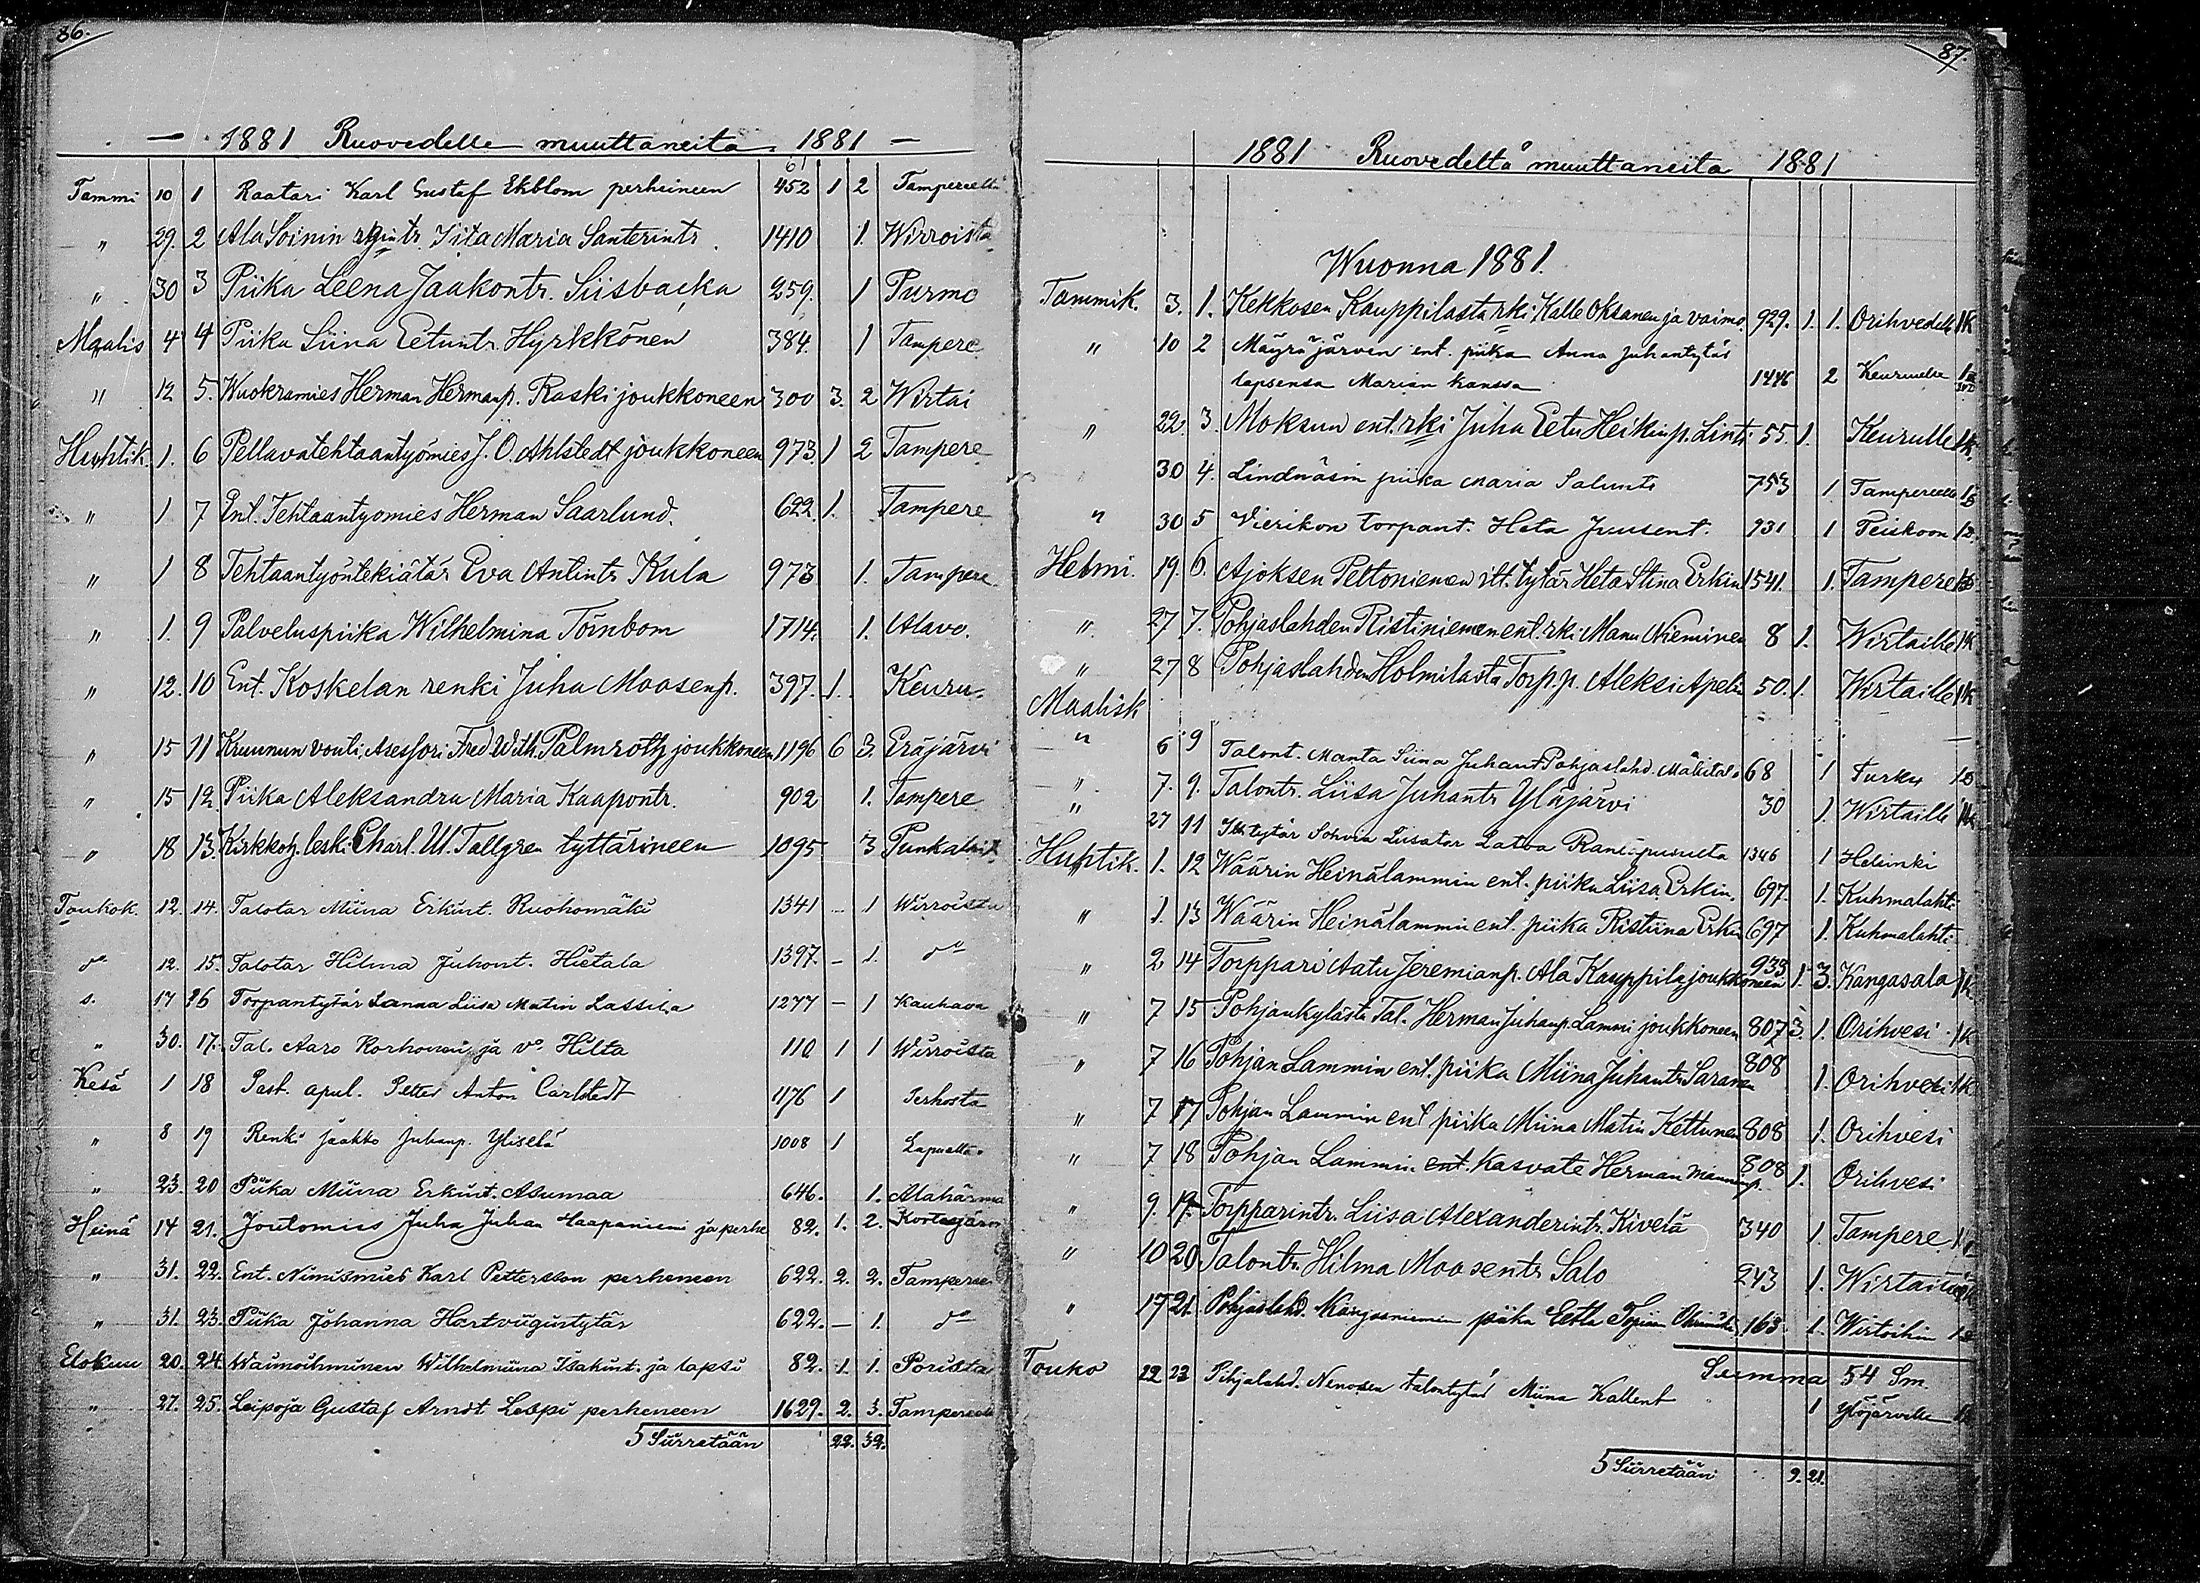 86.
— 1881 Ruovedelle muuttaneita. 1881 —
61
Tammi 10 1 Raatari Karl Gustaf Ekblom perheineen 452 1 2 Tampereelta
" 29. 2 Ala Soinin Iita Maria Santerintr. 1410 1. Wirroista
" 30 3 Piika Leena Jaakontr. Siisbacka 259. 1 Purmo
Maalis 4 4 Piika Siina Eetuntr. Hyrkkönen 384. 1 Tampere
" 12 5. Wuokramies Herman Hermanp. Raski joukkoneen 300 3. 2 Wirtai
Huhtik. 1. 6 Pellavatehtaantyömies J. O. Ahlstedt joukkoneen 973. 1 2 Tampere
" 1 7 Ent. Tehtaantyomies Herman Saarlund. 622. 1. Tampere
" 1 8 Tehtaantyöntekiätär Eva Antintr Kula 973 1. Tampere
" 1. 9 Palveluspiika Wilhelmina Törnbom 1714. 1. Alavo.
" 12. 10 Ent. Koskelan renki Juha Moosenp. 397. 1. Keuru.
" 15 11 Kruunun vouti, Asessori Fred. Wilh. Palmroth joukkoneen 1196 6 3. Eräjärvi
" 15 12. Piika Aleksandra Maria Kaapontr. 902 1. Tampere
" 18 13. Kirkkoh. leski Charl. Ul. Tallgren tyttärineen 1095 3 Punkalait
Toukok. 12. 14. Talotar Miina Erkint. Ruohomäki 1341 – 1 Wirroista
do 12. 15. Talotar Hilma Juhont. Hietala 1397. – 1. do
s. 17 16 Torpantytär Sanna Liisa Matin Lassila 1277 – 1 Kauhava
" 30. 17. Tal. Aaro Korhonen ja vo. Hilta 110 1 1 Wirroista
Kesä 1 18 Past. apul. Petter Anton Carlstedt 1176 1 Perhosta
" 8 19 Renki Jaakko Juhanp. Yliselä 1008 1 Lapualta.
" 23. 20 Piika Miina Erkint. Asumaa 646. 1. Alahärmä
Heinä 14 21. Joutomies Juha Juhan Haapaniemi ja perhe 82. 1. 2. Kortesjärvi
" 31. 22. Ent. Nimismies Karl Pettersson perheneen 622. 2. 2. Tampereen
" 31. 23. Piika Johanna Hartviigintytär 622. – 1. do
Elokuu 20. 24. Waimoihminen Wilhelmiina Isakint. ja lapsi 82. 1. 1. Porista
" 27. 25. Leipoja Gustaf Arndt Leopi perheneen 1629. 2. 3. Tampereelta
Siirretään 22. 32.
87.
1881 Ruovedeltä muuttaneita 1881
Wuonna 1881.
Tammik. 3. 1. Kekkosen Kauppilasta rki Kalle Oksanen ja vaimo 929. 1. 1. Orihvedelle 1k
" 10 2 Mäyräjärven ent. piika Anna Juhantytär
lapsensa Marian kanssa 1446 2 Keuruulle
" 22. 3. Moksun ent. rki Juha Eetu Heikinp. 55. 1. Keurulle 1k.
30 4. Lindnäsin piika Maria Salunts 753 1 Tampereelle
" 30 5 Vierikon torpant. Heta Juusent. 931 1 12
Helmi. 19. 6. Ajoksen Peltoniemen itt. tytär Heta Stina Erkin 1541. 1. Tampere
" 27 7. Pohjaslahden Ristiniemen ent. rki Manu Nieminen 8 1. Wirtaille 1k
" 27 8 Pohjaslahden Holmilasta Torp. p. Aleksi Apeli 50. 1. Wirtaille 1k
Maalisk
" 6 9 Talont. Manta Siina Juhant Pohjaslahd. Mäkital. 68 1 Turku
" 7. 9. Talontr. Liisa Juhantr Yläjärvi 30 1. Wirtaille
" 27 11 Sohvia Latva 1346 1 Helsinki
Huhtik. 1. 12 Wäärin Heinälammin ent. piika Liisa Erkin. 697. 1. Kuhmalahti
" 1. 13 Wäärin Heinälammin ent. piika Ristiina Erkin 697 1. Kuhmalahti
" 2 14 Torppari Aatu Jeremianp. Ala Kauppila joukkoneen 933 1. 3. Kangasala 1k
" 7 15 Pohjankylästä Tal. Herman Juhanp. Lammi joukkoneen 807 3. 1. Orihvesi 1k
" 7 16 Pohjan Lammin ent. piika Miina Juhantr Saranen 808 1. Orihvesi 1k
" 7 17 Pohjan Lammin ent piika Miina Matin Kettunen 808 1. Orihvesi
" 7 18 Pohjan Lammin ent. Kasvate Herman Manunp. 808 1. Orihvesi
" 9. 19. Torpparintr. Liisa Alexanderintr. Kivelä 340 1. Tampere
" 10 20 Talontr. Hilma Moosentr Salo 243 1. Wirtaille
" 17 21. Pohjaslahd. piika Eetla 163 1. Wirtoihin
Summa 54 Sm.
Touko 22 23 Pihjalahd. Nenosen talontytär Miina Kallent 1 Ylöjärvelle
Siirretään 9. 21.